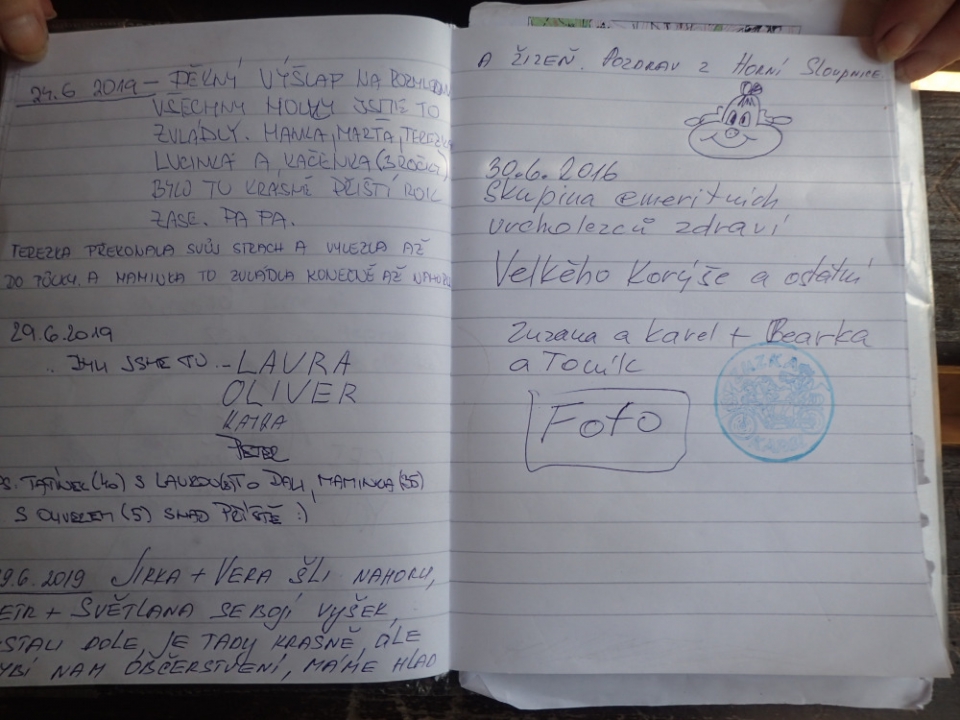 24.6 2019 - PĚKNÝ VÝŠLAP NA
VŠECHNY HOLKY JSME TO
ZVLÁDLY. HANKA, MARTA, TEREZKA
LUCINKA A KAČENKA (3 ROČKY)
BYLO TU KRASNĚ PŘÍŠTÍ ROK
ZASE. PA PA.
TEREZKA PŘEKONALA SVŮJ STRACH A VYLEZLA AŽ
DO PŮLKY, A MAMINKA TO ZVLÁDLA KONEČNĚ AŽ
29.6.2019
.. BYLI JSME TU - LAURA
OLIVER
KATKA
PETER
PS. TATÍNEK (40) S LAUROU TO DALI, MAMINKA (35)
S OLIVEREM (5) SNAD PŘÍŠTĚ :)
29.6.2019 JIRKA + VERA ŠLI NAHORU,
PETR + SVĚTLANA SE BOJÍ VÝŠEK,
DOLE, JE TADY KRASNĚ, ALE
NAM OBČERSTVENÍ, MÁME HLAD
A ŽÍZEŇ. POZDRAV Z HORNÍ SLOUPNICE
30.6.2016
Skupina emeritních
vrcholezců zdraví
Velkého Korýše a ostatní
Zuzana a Karel + Bearka
a Tomík
Foto